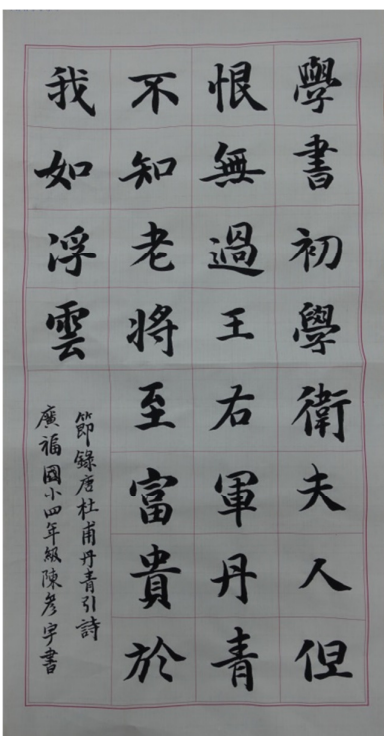 學書初學衛夫人但
恨無過王右軍丹青
不知老將至富貴於
我如浮雲
節錄唐杜甫丹青引詩
廣福國小四年級陳彥宇書